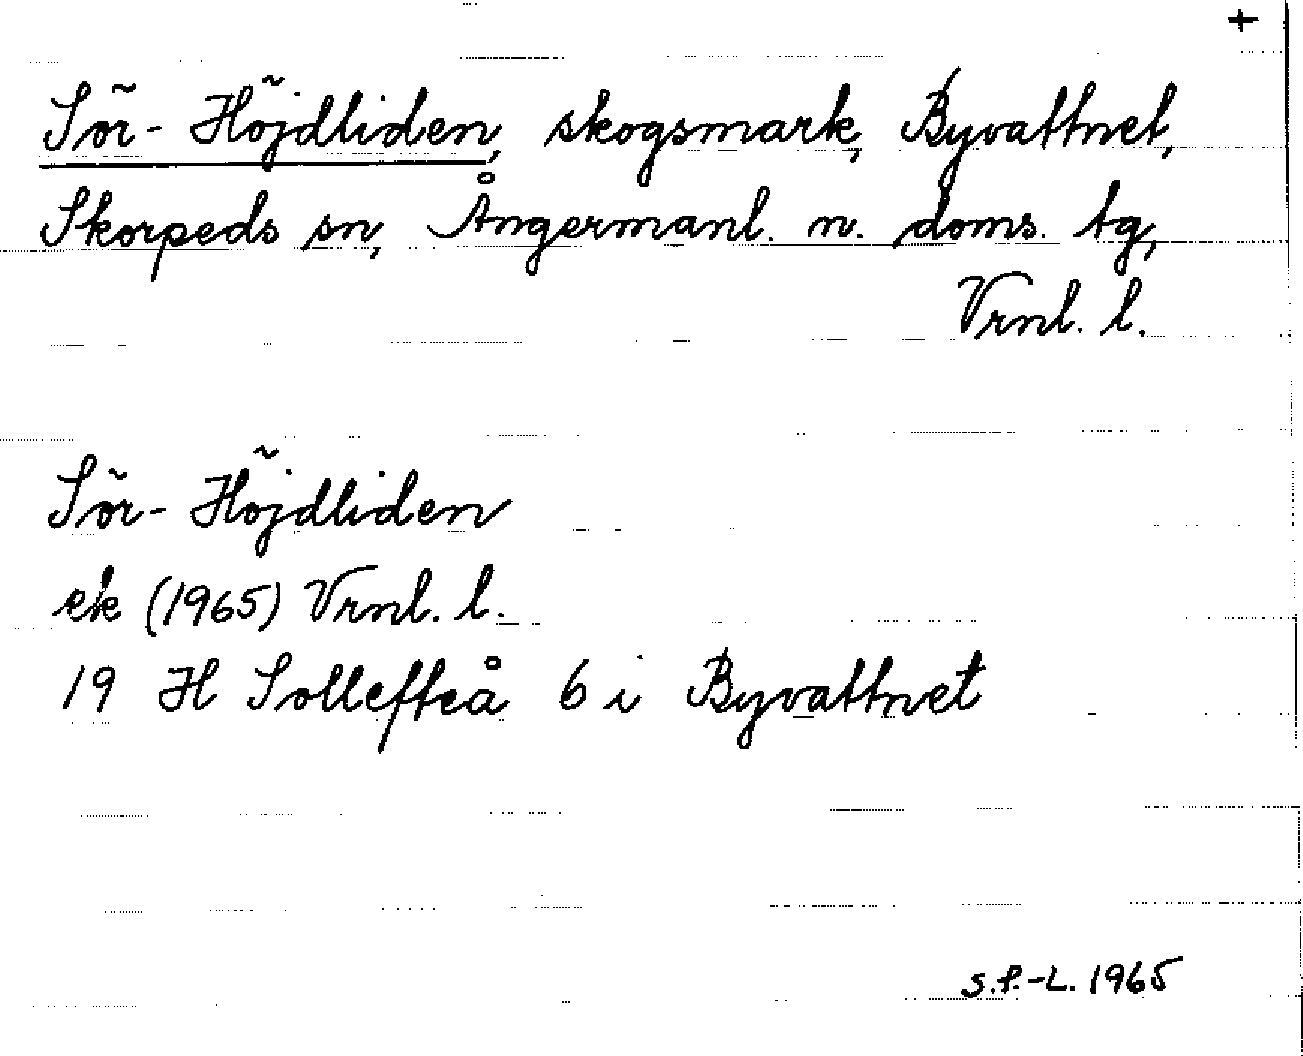 +
Sör-Höjdliden, skogsmark, Byvattnet,
Skorpeds sn, Ångermanl. n. doms. tg,
Vrnl. l.
Sör-Höjdliden
ek (1965) Vrnl. l.
19 H Sollefteå 6 i Byvattnet
S.P.-L. 1965